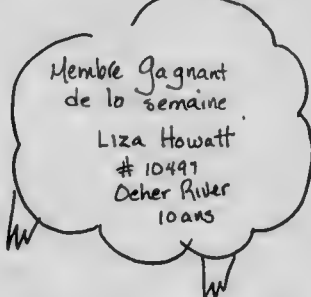 Membre Gagnant
de la semaine
Liza Howatt
# 10497
Ocher River
10 ans